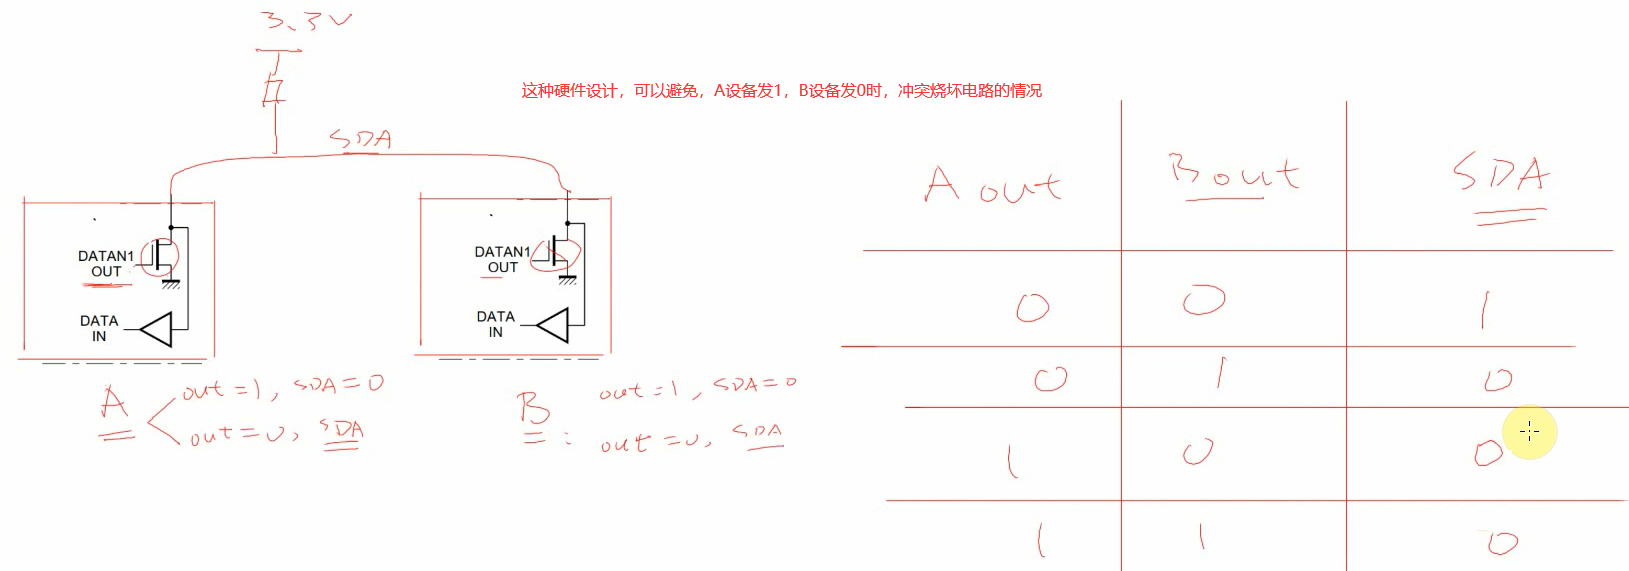 3.3V
这种硬件设计，可以避免，A设备发1，B设备发0时，冲突烧坏电路的情况
SDA
DATAN1
OUT
DATA
IN
DATAN1
OUT
DATA
IN
A
out=1, SDA=0
out=0, SDA
B:
out=1, SDA=0
out=0, SDA
A out B out SDA
0 0 1
0 1 0
1 0 0
1 1 0